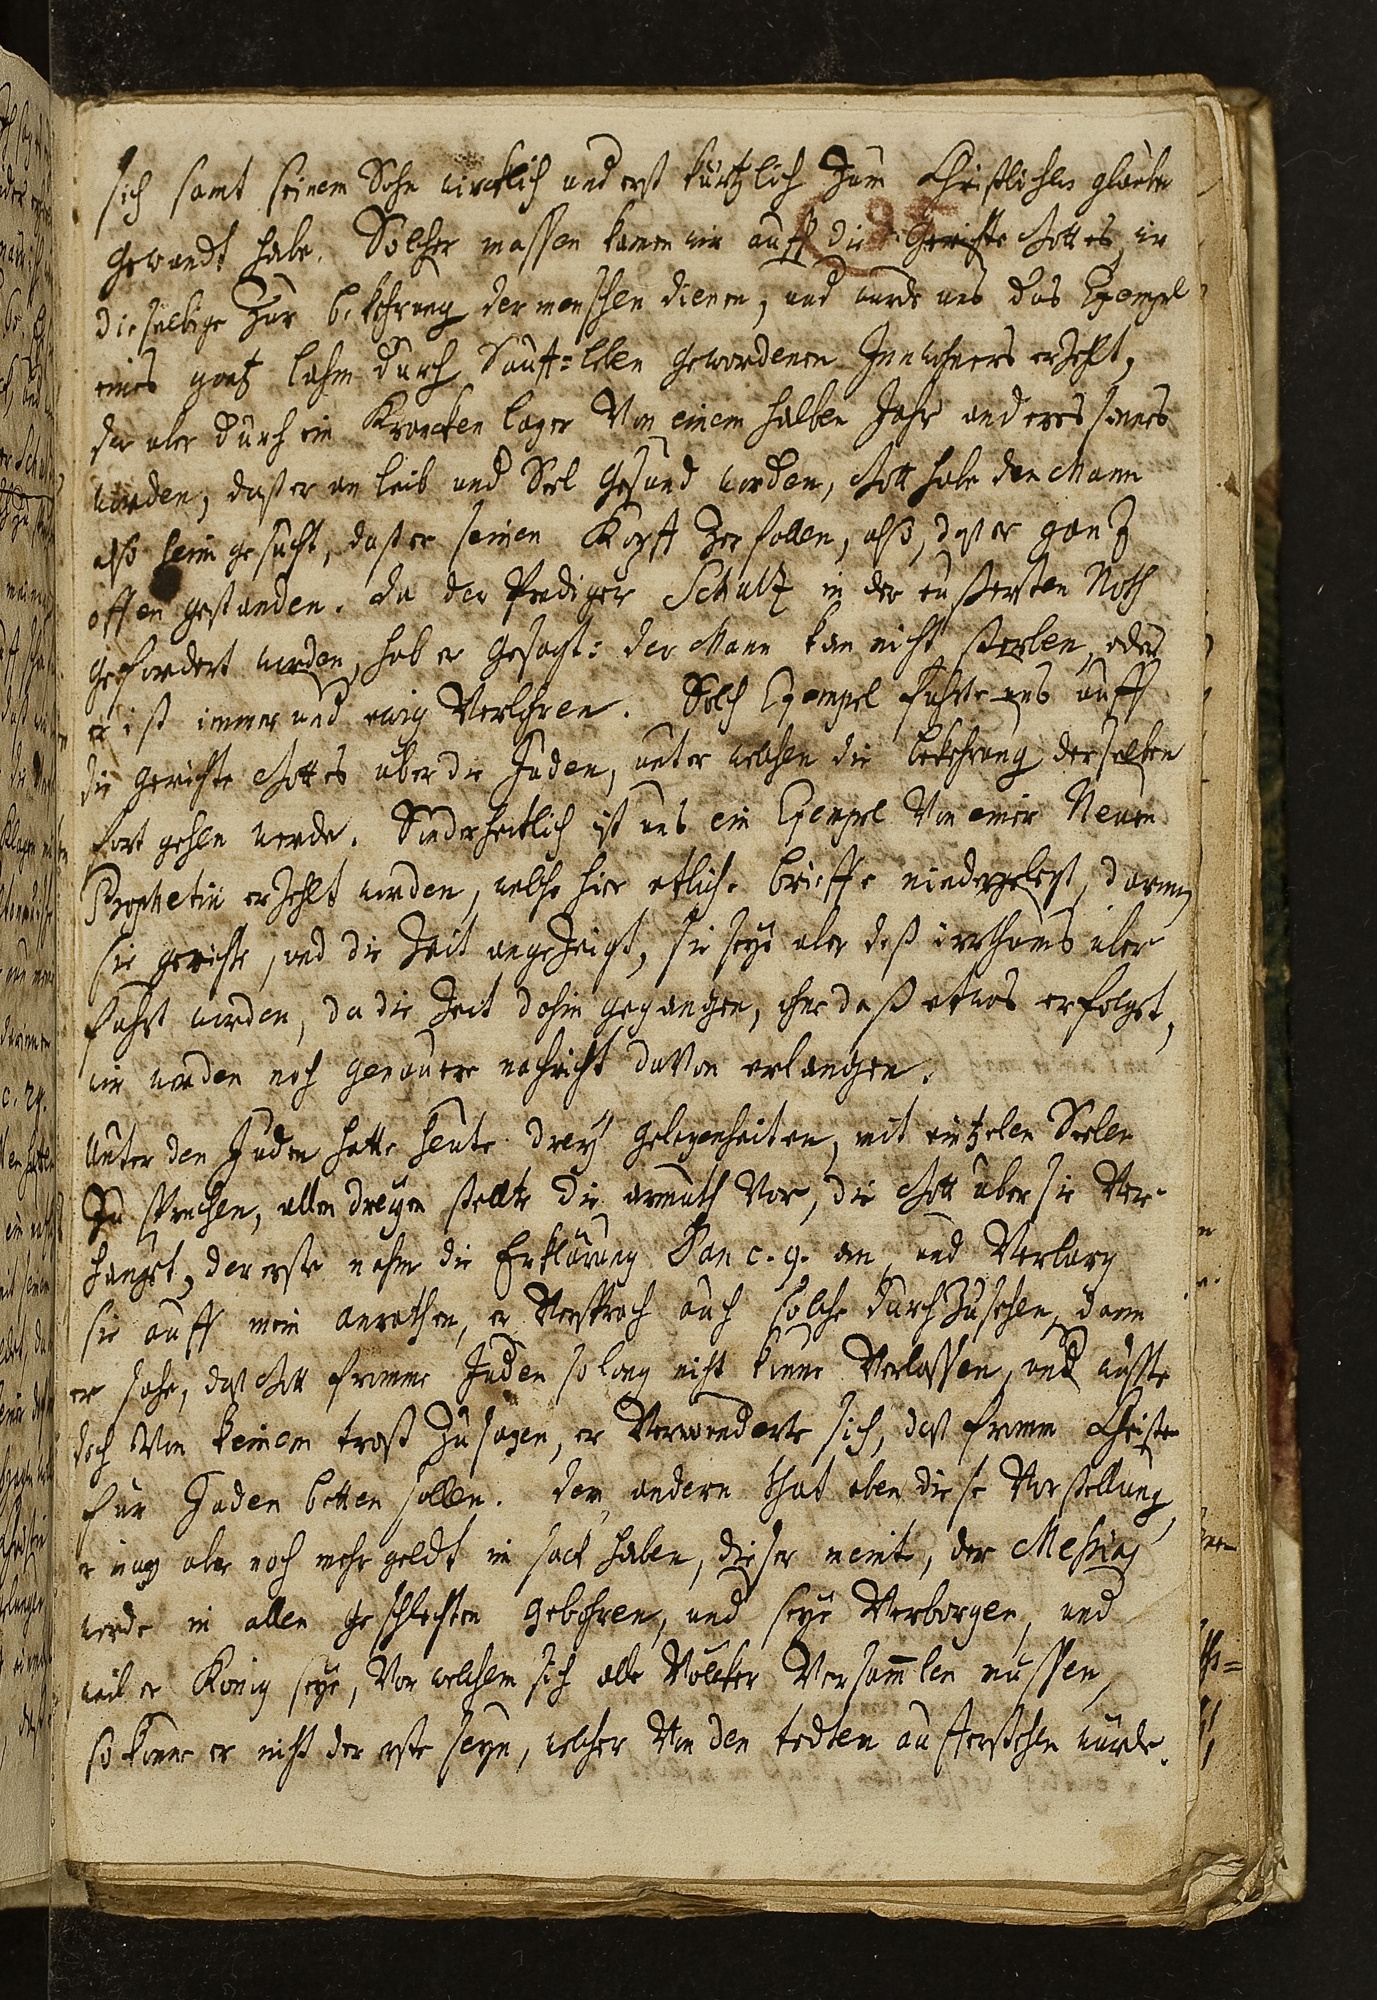 sich samt seinem Sohn wircklich und erst kürtzlich zum Christlichen glauben
gewandt habe. Solcher massen kamen wir auff die Gerichte Gottes, wie
dieselbige zur bekehrung der menschen dienen, und wurde uns das Exempel
eines gantz lahm durch Sauff-leben gewordenen Innwohners erzehlt,
der aber durch ein Krancken lager Von einem halben Jahr anderes sinnes
worden, daß er an leib und Seel gesund worden, Gott habe den Mann
also heimgesucht, daß er seinen Kopff zerfallen, also, daß er ganz
offen gestanden. da der Prediger Schultz in der eußersten Noth
gefordert worden, hab er gesagt: der Mann kan nicht sterben, oder
er ist immer und ewig Verlohren. Solch Exempel führte uns auff
die gerichte Gottes über die Juden, unter welchen die bekehrung derselben
fort gehen werde. Sonderheitlich ist uns ein Exempel Von einer Neuen
Prophetin erzehlt worden, welche hier etliche brieffe niedergelegt, darinn
sie gerichte, und die Zeit angezeigt, sie seye aber deß irrthums über
führt worden, da die Zeit dahin gegangen, ohne daß etwas erfolget,
wir werden noch genauere nachricht davon erlangen.
Unter den Juden hatte heute drey gelegenheiten, mit eintzelen Seelen
zu sprechen, allen dreyen stellte die armuth Vor, die Gott über sie Ver-
hänget, der erste nahm die Erklärung Dan c. 9. an, und Verbarg
sie auff mein anrathen, er Versprach auch solche durchzusehen, dann
er sehe, daß Gott fromme Juden so lang nicht könne Verlassen, und wüste
doch Von keinem trost zu sagen, er Verwunderte sich, daß fromm Christen
für Juden betten sollen. dem andern that eben diese Vorstellung,
er mag aber noch mehr geldt im sack haben, dieser meint, der Messias
werde in allen geschlechten gebohren, und seye Verborgen, und
weil er König seye, Vor welchem sich alle Völcker Versammlen müssen,
so könne er nicht der erste seyn, welcher Von den todten aufferstehen würde.